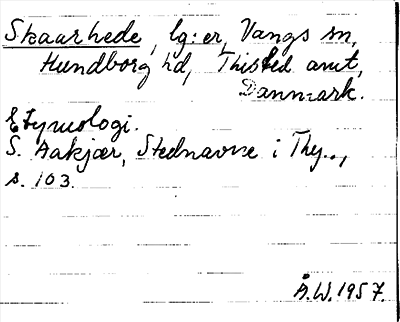 Skaarhede, lg:er, Vangs sn,
Hundborg hd, Thisted amt,
Danmark.
Etymologi.
S. Aakjær, Stednavne i Thy..,
s. 103.
Å.W. 1957.